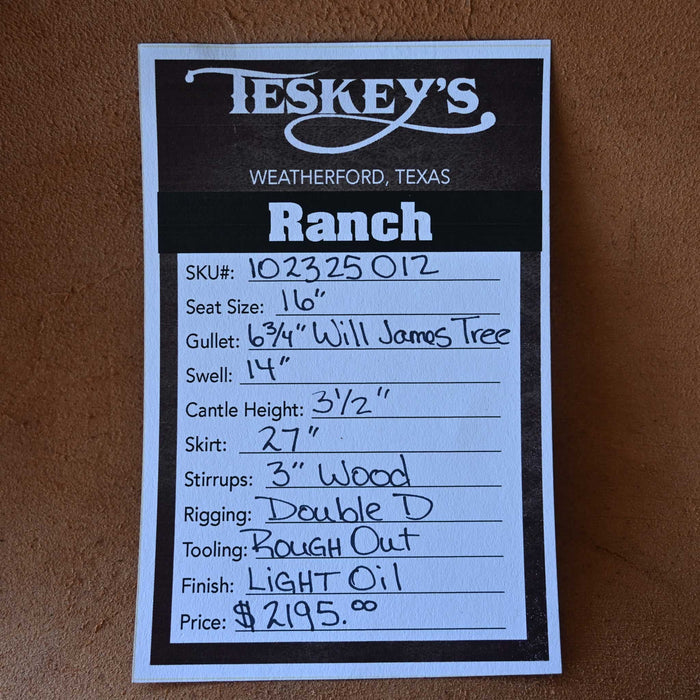 TESKEY'S
WEATHERFORD, TEXAS
Ranch
SKU#: 102325012
Seat Size: 16"
Gullet: 6 3/4" Will James Tree
Swell: 14"
Cantle Height: 3 1/2"
Skirt: 27"
Stirrups: 3" Wood
Rigging: Double D
Tooling: ROUGH OUT
Finish: LIGHT Oil
Price: $2195.00